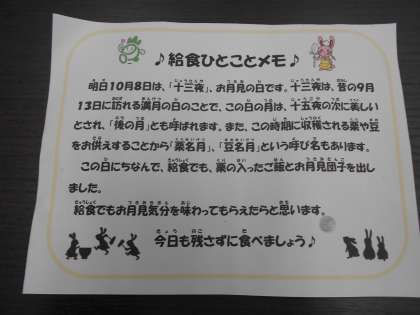 ♪給食ひとことメモ♪
明日10月8日は、「十三夜」、お月見の日です。十三夜は、昔の9月
13日に訪れる満月の日のことで、この日の月は、十五夜の次に美しい
とされ、「後の月」とも呼ばれます。また、この時期に収穫される栗や豆
をお供えすることから「栗名月」、「豆名月」という呼び名もあります。
この日にちなんで、給食でも、栗の入ったご飯とお月見団子を出し
ました。
給食でもお月見気分を味わってもらえたらと思います。
今日も残さずに食べましょう♪